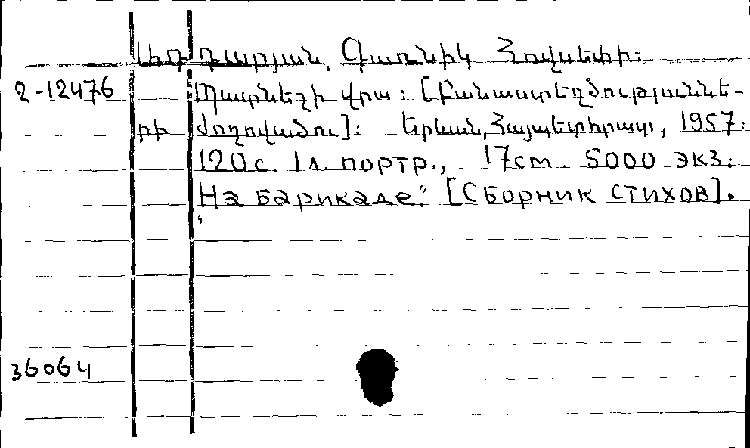 Դարյան, Գառնիկ Հովսեփի:
2-12476 Պատնեշի վրա: [Բանաստեղծություննե-
րի ժողովածու]: Երևան, Հայպետհրատ, 1957.
120 с. 1 л. портр., 17 cm. 5000 экз.
На барикаде. [Сборник стихов].
36064